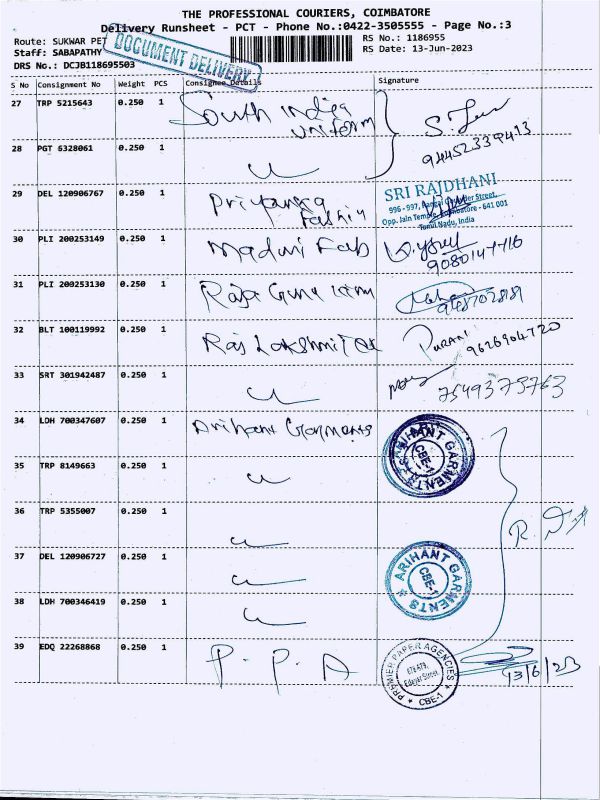 THE PROFESSIONAL COURIERS, COIMBATORE
Delivery Runsheet - PCT - Phone No.:0422-3505555 - Page No.:3
Route: SUKWAR PET
RS No.: 1186955
Staff: SABAPATHY
RS Date: 13-Jun-2023
DRS No.: DCJB118695503
DOCUMENT DELIVERY
S No Consignment No Weight PCS Consignee Details Signature
27 TRP 5215643 0.250 1 South india
uniform
28 PGT 6328061 0.250 1
29 DEL 120906767 0.250 1 Priyanka
Fashin
SRI RAJDHANI
996 - 997, Street,
Opp. Jain Temple, Coimbatore - 641 001
Tamil Nadu, India
30 PLI 200253149 0.250 1 Madhvi Fab
9080147716
31 PLI 200253130 0.250 1 Raja
32 BLT 100119992 0.250 1 Raj Lakshmi Tex
PURANI
9626904720
33 SRT 301942487 0.250 1
7549375763
34 LDH 700347607 0.250 1 Arihant Garments
ARIHANT GARMENTS
CBE-1
35 TRP 8149663 0.250 1
36 TRP 5355007 0.250 1
37 DEL 120906727 0.250 1
ARIHANT GARMENTS
CBE-1
38 LDH 700346419 0.250 1
39 EDQ 22268868 0.250 1 P. P. A
PREMIER PAPER AGENCIES
CBE-1
13/6/23